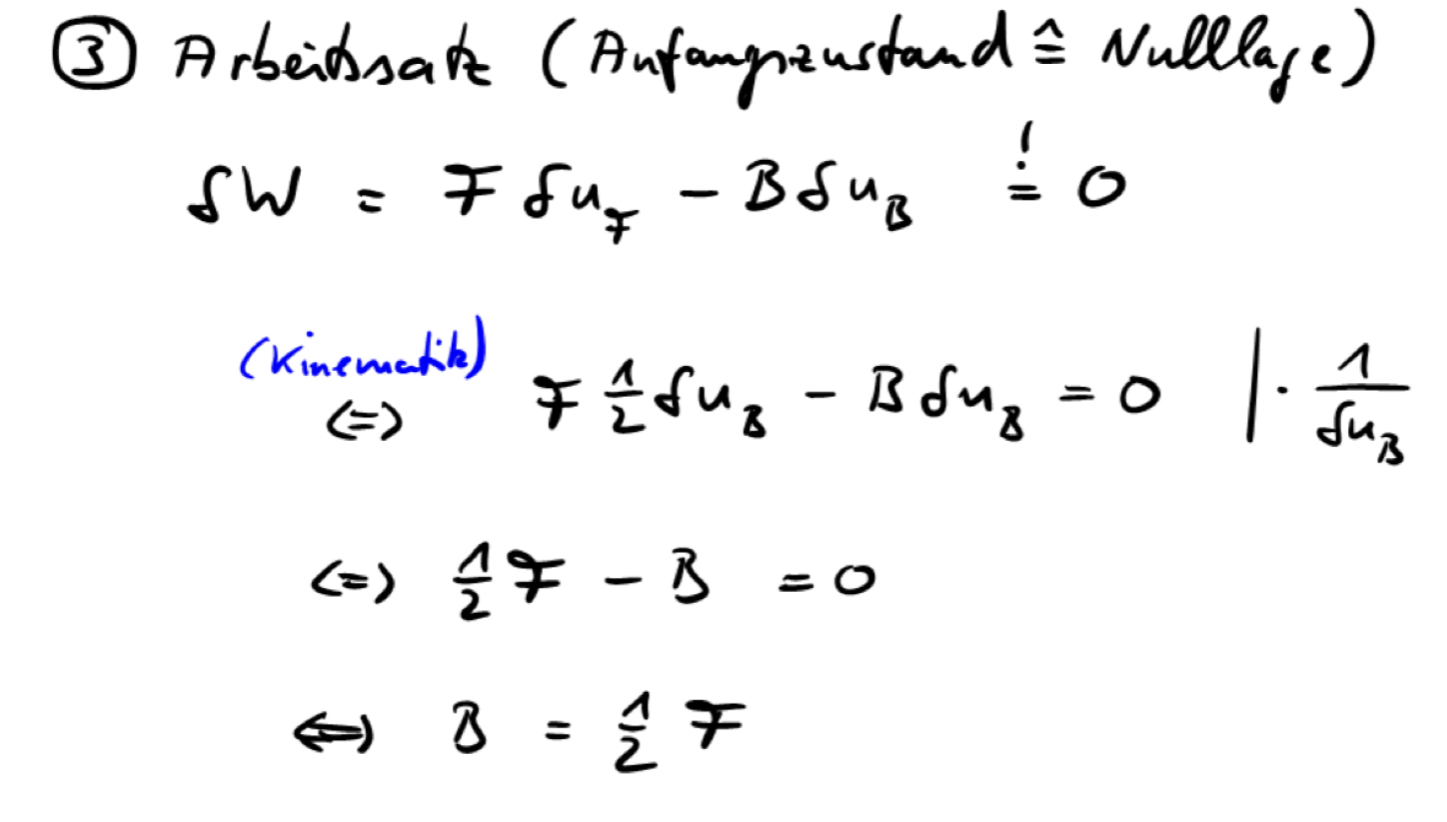 ③ Arbeitssatz (Anfangszustand ≙ Nulllage)
δW = F δu_F − B δu_B =! 0
(Kinematik)
<=> F 1/2 δu_B − B δu_B = 0 | · 1/δu_B
<=> 1/2 F − B = 0
<=> B = 1/2 F